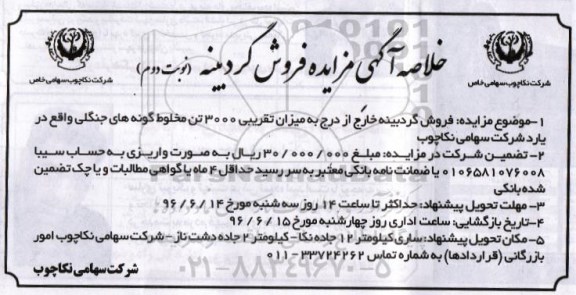 خلاصه آگهی مزایده فروش گردبینه (نوبت دوم)
شرکت نکاچوب سهامی خاص
شرکت نکاچوب سهامی خاص
۱-موضوع مزایده: فروش گردبینه خارج از درج به میزان تقریبی ۳۰۰۰ تن مخلوط گونه های جنگلی واقع در
یارد شرکت سهامی نکاچوب
۲- تضمین شرکت در مزایده: مبلغ ۳۰/۰۰۰/۰۰۰ ریال به صورت واریزی به حساب سیبا
۰۱۰۶۵۸۱۰۷۶۰۰۸ یا ضمانت نامه بانکی معتبر به سر رسید حداقل ۴ ماه یا گواهی مطالبات و یا چک تضمین
شده بانکی
۳- مهلت تحویل پیشنهاد: حداکثر تا ساعت ۱۴ روز سه شنبه مورخ ۹۶/۶/۱۴
۴-تاریخ بازگشایی: ساعت اداری روز چهارشنبه مورخ ۹۶/۶/۱۵
۵- مکان تحویل پیشنهاد: ساری کیلومتر ۱۲ جاده نکا- کیلومتر ۲ جاده دشت ناز- شرکت سهامی نکاچوب امور
بازرگانی (قراردادها) به شماره تماس ۳۳۷۲۴۲۶۲-۰۱۱
شرکت سهامی نکاچوب
۰۲۱-۸۸۳۴۹۶۷۰-۵